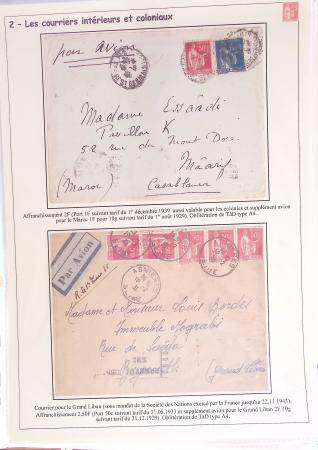 2 - Les courriers intérieurs et coloniaux
par avion
Madame Essâadi
Pavillon K
52 rue du Mont Dore
Mâarif
(Maroc)
Casablanca
Affranchissement 2F (Port 1F suivant tarif du 1er décembre 1939 aussi valable pour les colonies et supplément avion
pour le Maroc 1F pour 10g suivant tarif du 1er août 1929). Oblitération de TàD type A4.
Par Avion
ASNIERES
Madame et Monsieur Louis
Immeuble
Rue de
Beyrouth
(Grand Liban)
Courrier pour le Grand Liban (sous mandat de la Société des Nations exercé par la France jusqu'au 22.11 1943).
Affranchissement 2.50F (Port 50c suivant tarif du 31.05.1933 et supplément avion pour le Grand Liban 2F/10g
suivant tarif du 21.12.1929). Oblitération de TàD type A4.